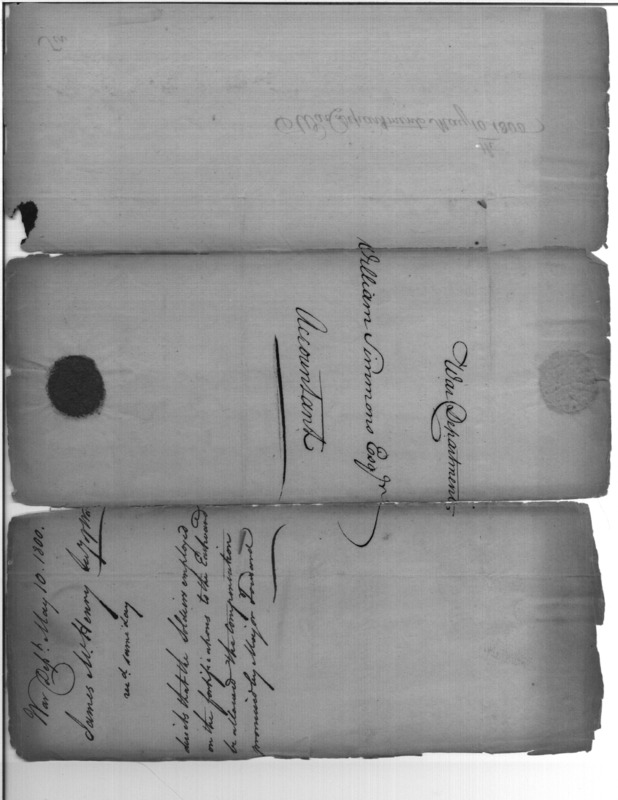 War Department
William Simmons Esqr
Accountant
War Dept. May 10. 1800.
James McHenry
recd. same day
directs that the Soldiers employed
on the fortifications to the Eastward
be allowed the compensation
promised by Major
War Department May 10th 1800